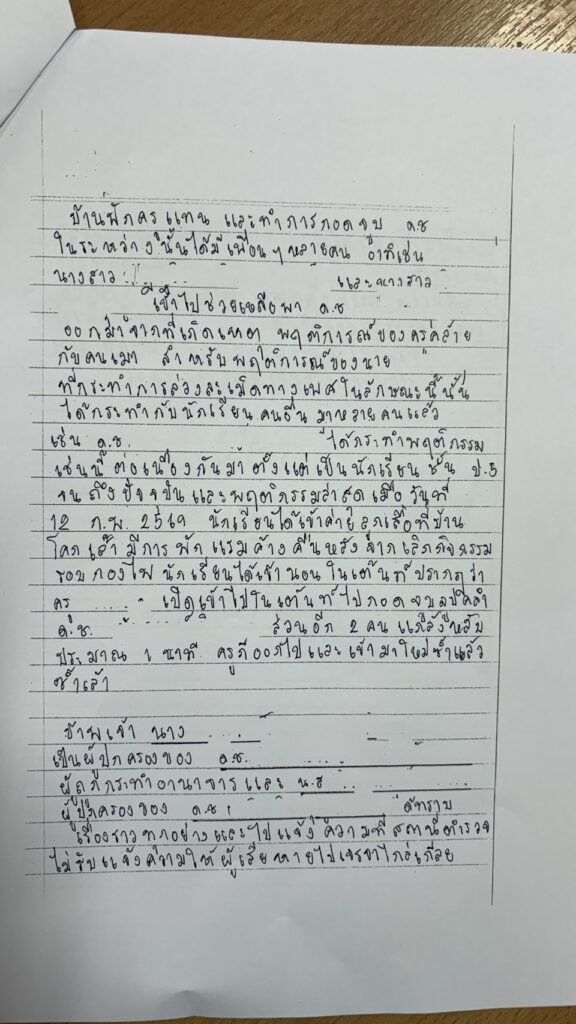 บ้านพักครูแทน และทำการกอดจูบ ด.ช
ในระหว่างนั้นได้มีเพื่อนๆหลายคน อาทิเช่น
นางสาว และนางสาว
ได้เข้าไปช่วยเหลือพา ด.ช
ออกมาจากที่เกิดเหตุ พฤติการณ์ของครูคล้าย
กับคนเมา สำหรับพฤติการณ์ของนาย
ที่กระทำการล่วงละเมิดทางเพศในลักษณะนี้นั้น
ได้กระทำกับนักเรียนคนอื่นมาหลายคนแล้ว
เช่น ด.ช. ได้กระทำพฤติกรรม
เช่นนี้ต่อเนื่องกันมาตั้งแต่เป็นนักเรียนชั้น ป.5
จนถึงปัจจุบันและพฤติกรรมล่าสุดเมื่อวันที่
12 ก.พ. 2569 นักเรียนได้เข้าค่ายลูกเสือที่บ้าน
โคกเล้า มีการพักแรมค้างคืนหลังจากเลิกกิจกรรม
รอบกองไฟนักเรียนได้เข้านอนในเต้นท์ปรากฏว่า
ครู เปิดเข้าไปในเต้นท์ไปกอดจูบลูบไคล้
ด.ช. ส่วนอีก 2 คนแกล้งหลับ
ประมาณ 1 นาที ครูก็ออกไปและเข้ามาใหม่ซ้ำแล้ว
ซ้ำเล้า
ข้าพเจ้า นาง
เป็นผู้ปกครองของ ด.ช.
ผู้ถูกกระทำอานาจารและ น.ส
ผู้ปกครองของ ด.ช. ได้ทราบ
เรื่องราวทุกอย่างและไปแจ้งความที่สถานีตำรวจ
ไม่รับแจ้งความให้ผู้เสียหายไปเจรจาไกล่เกลี่ย